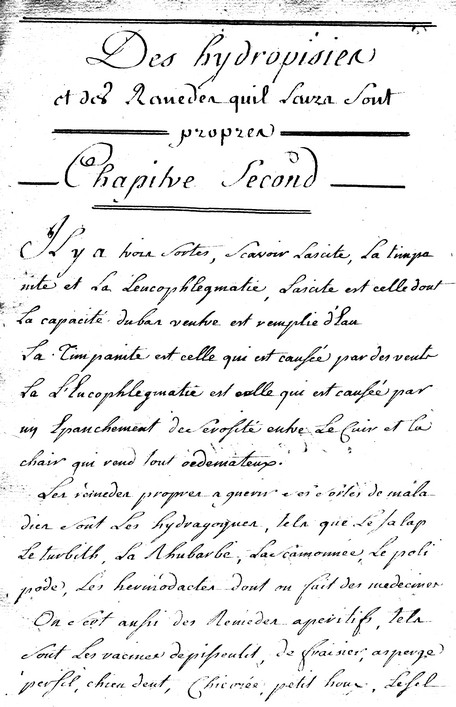 Des hydropisies
et des Remedes quil Leurs Sont
propres
Chapitre Second
Il y a trois Sortes, Scavoir Lascite, La timpa
nite et La Leucophlegmatie, Lascite est celle dont
La capacité du bas ventre est remplie d'Eau
La Timpanite est celle qui est causée par des vents
La L'Eucophlegmatie est celle qui est causée par
un Epanchement de Serosité entre Le Cuir et la
chair qui rend tout oedemateux.
Les remedes propres a guerir ces sortes de mala
dies Sont Les hydragogues, tels que Le Jalap
Le turbith, La Rhubarbe, La Scamonnée, Le poli
pode, Les hermodactes dont on fait des medecines
On aussi des Remedes aperitifs, tels
Sont Les racines de pissenlit, de fraisier, asperge
persil, chien dent, Chicorée, petit houx, Le Sel